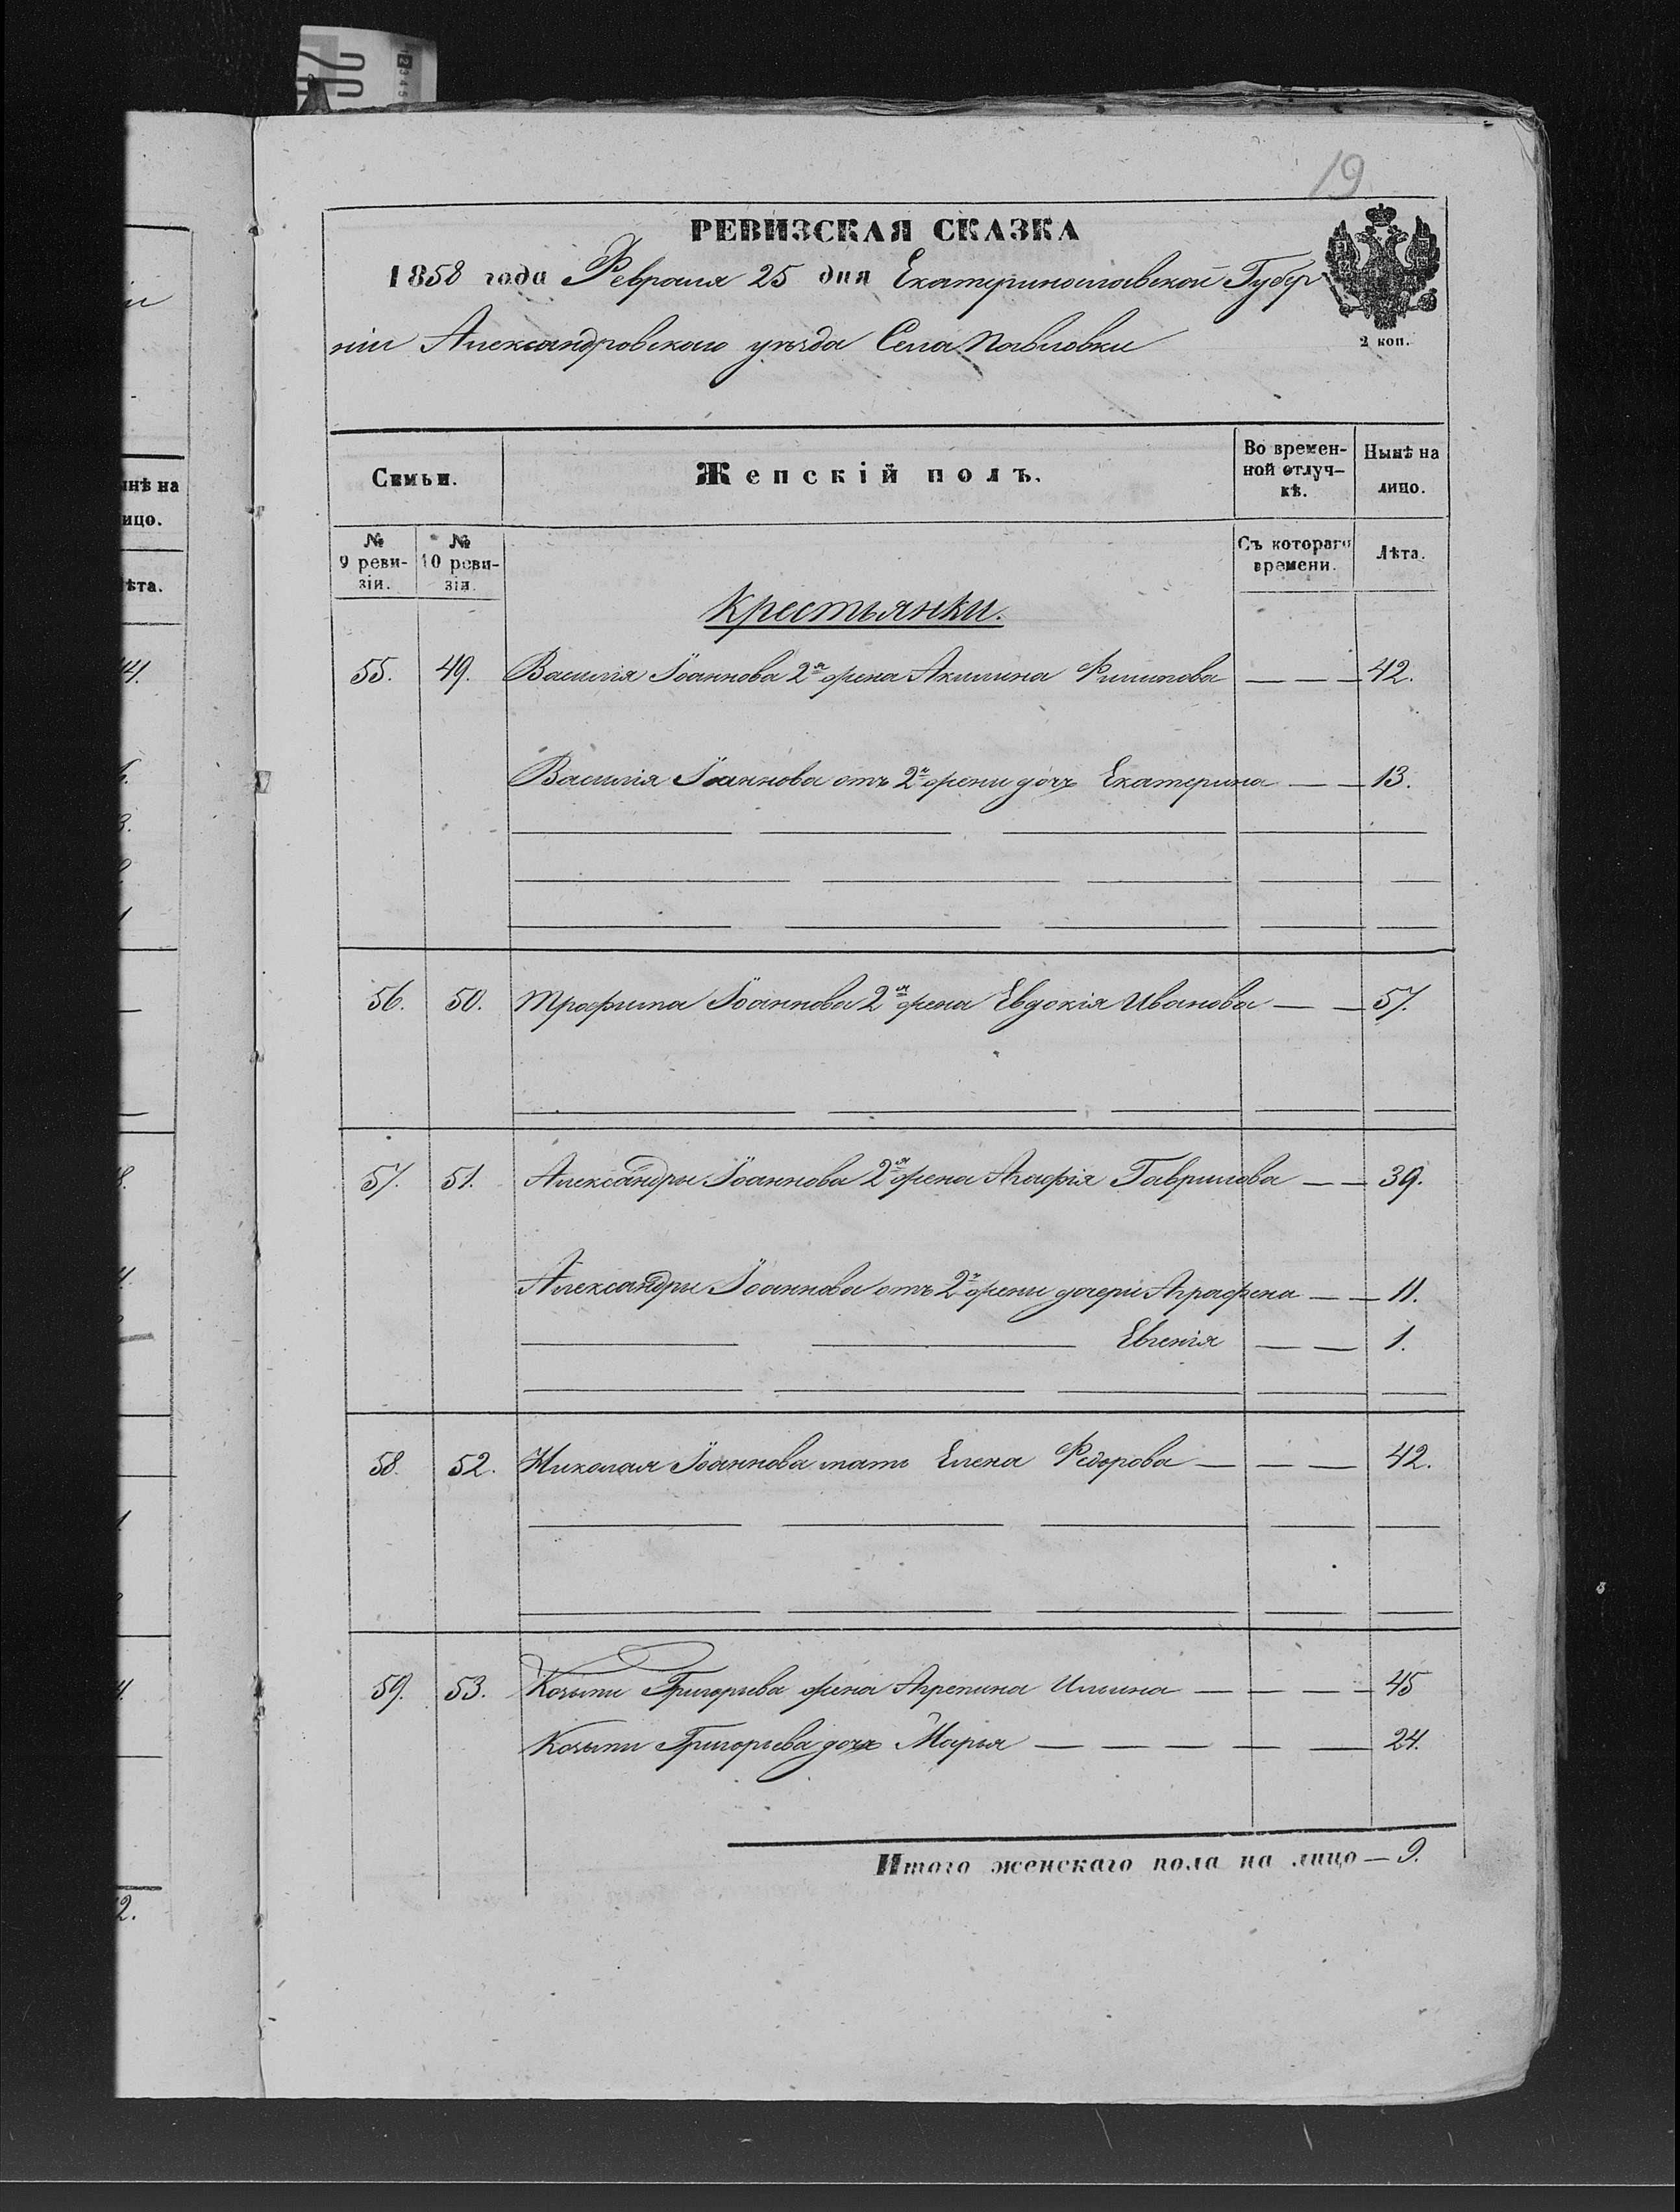 19
РЕВИЗСКАЯ СКАЗКА
1858 года Февраля 25 дня Екатеринославской Губер
ніи Александровскаго уѣзда Села Павловки
2 коп.
Семьи.
Женскій полъ.
Во времен-
ной отлуч-
кѣ.
Нынѣ на
лицо.
№
9 реви-
зіи.
№
10 реви-
зіи.
Съ котораго
времени.
Лѣта.
Крестьянки.
55. 49. Василія Іоаннова 2я жена Акилина Филипова 42.
Василія Іоаннова отъ 2й жены дочь Екатерина 13.
56. 50. Трофима Іоаннова 2я жена Евдокія Иванова 57.
57. 51. Александры Іоаннова 2я жена Агафія Гаврилова 39.
Александры Іоаннова отъ 2й жены дочери Аграфена 11.
Евгенія 1.
58. 52. Николая Іоаннова мать Елена Федорова 42.
59. 53. Козьмы Григорьева жена Агрепина Ильина 45
Козьмы Григорьева дочь Марья 24.
Итого женскаго пола на лицо — 9.
инѣ на
ицо.
ѣта.